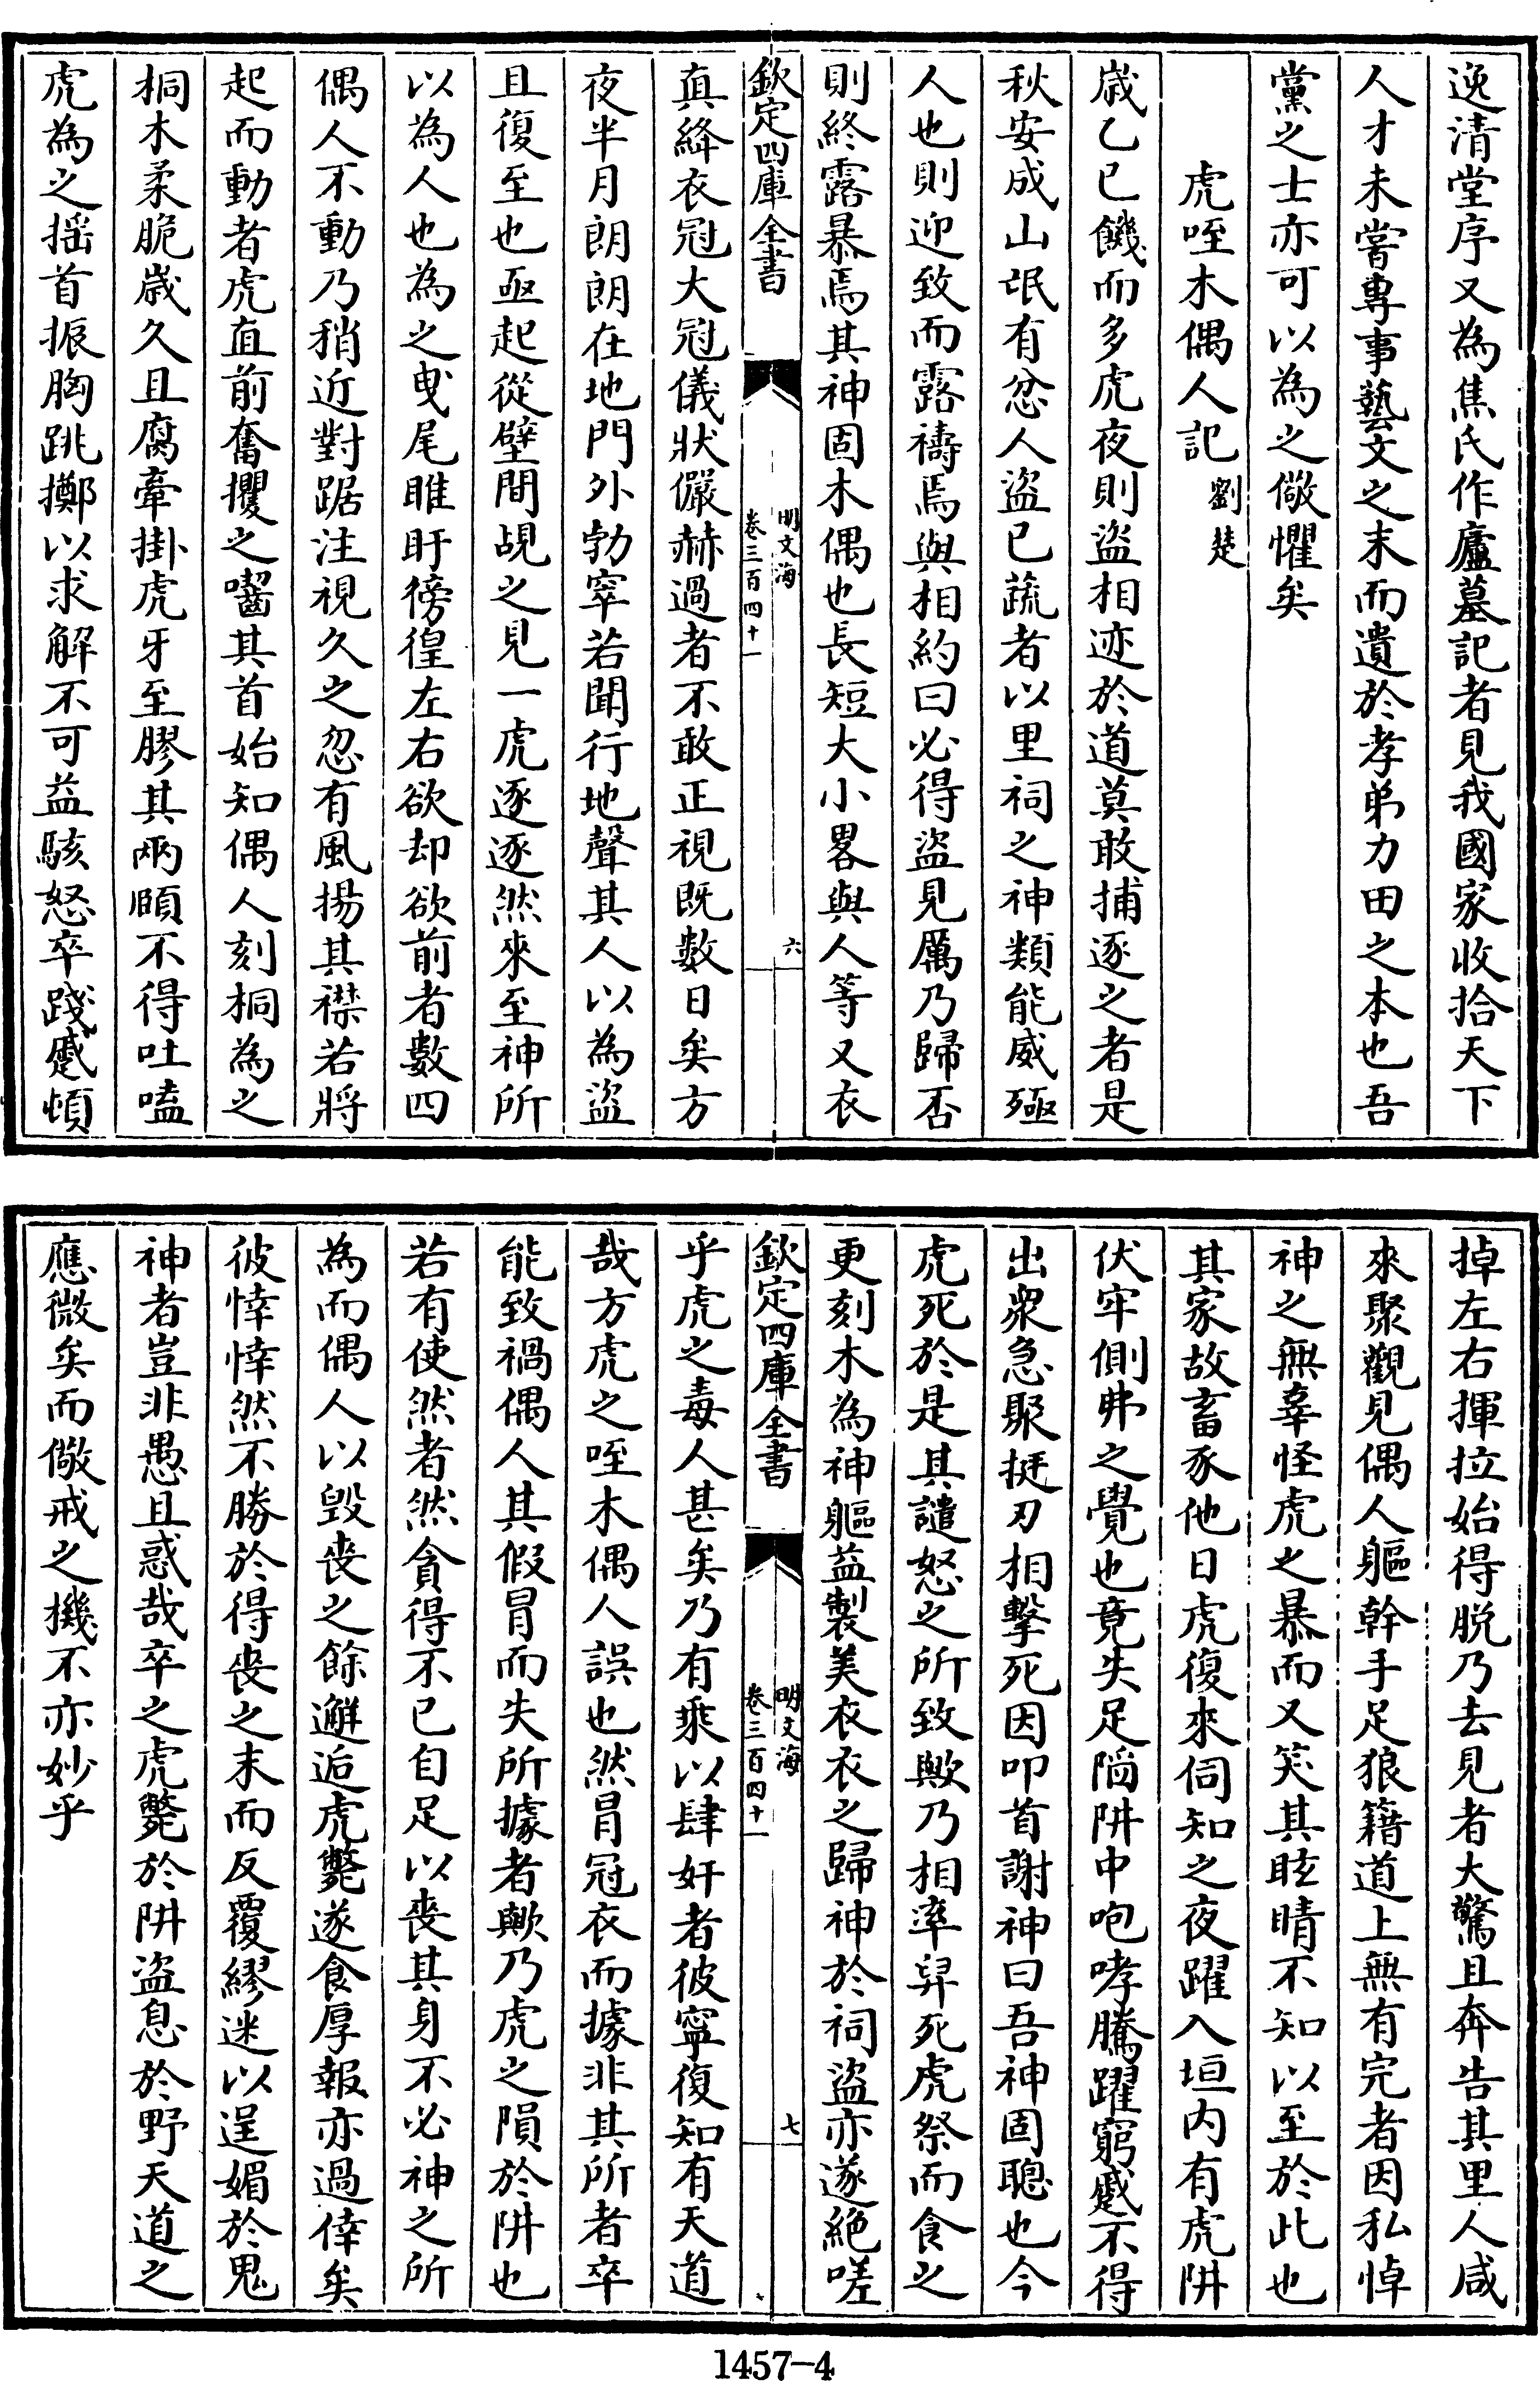 逸清堂序又為焦氏作廬墓記者見我國家收拾天下
人才未嘗專事藝文之末而遺於孝弟力田之本也吾
黨之士亦可以為之儆懼矣
虎咥木偶人記 劉楚
歲乙巳饑而多虎夜則盜相迹於道莫敢捕逐之者是
秋安成山氓有忿人盜已蔬者以里祠之神類能威殛
人也則迎致而露禱焉與相約曰必得盜見厲乃歸否
則終露暴焉其神固木偶也長短大小畧與人等又衣
欽定四庫全書
明文海
卷三百四十一
六
真絳衣冠大冠儀狀儼赫過者不敢正視既數日矣方
夜半月朗朗在地門外勃窣若聞行地聲其人以為盜
且復至也亟起從壁間覘之見一虎逐逐然來至神所
以為人也為之曳尾睢盱徬徨左右欲却欲前者數四
偶人不動乃稍近對踞注視久之忽有風揚其襟若將
起而動者虎直前奮攫之嚙其首始知偶人刻桐為之
桐木柔脆歲久且腐牽掛虎牙至膠其兩頤不得吐嗑
虎為之揺首振胸跳擲以求解不可益駭怒卒踐蹙頓
掉左右揮拉始得脫乃去見者大驚且奔告其里人咸
來聚觀見偶人軀幹手足狼籍道上無有完者因私悼
神之無辜怪虎之暴而又笑其眩睛不知以至於此也
其家故畜豕他日虎復來伺知之夜躍入垣内有虎阱
伏牢側弗之覺也竟失足陷阱中咆哮騰躍窮蹙不得
出衆急聚挺刃相擊死因叩首謝神曰吾神固聰也今
虎死於是其譴怒之所致歟乃相率舁死虎祭而食之
更刻木為神軀益製美衣衣之歸神於祠盜亦遂絶嗟
欽定四庫全書
明文海
卷三百四十一
七
乎虎之毒人甚矣乃有乘以肆奸者彼寧復知有天道
哉方虎之咥木偶人誤也然冒冠衣而據非其所者卒
能致禍偶人其假冒而失所據者歟乃虎之隕於阱也
若有使然者然貪得不已自足以喪其身不必神之所
為而偶人以毀喪之餘邂逅虎斃遂食厚報亦過倖矣
彼悻悻然不勝於得喪之末而反覆繆迷以逞媚於鬼
神者豈非愚且惑哉卒之虎斃於阱盜息於野天道之
應微矣而儆戒之機不亦妙乎
1457-4